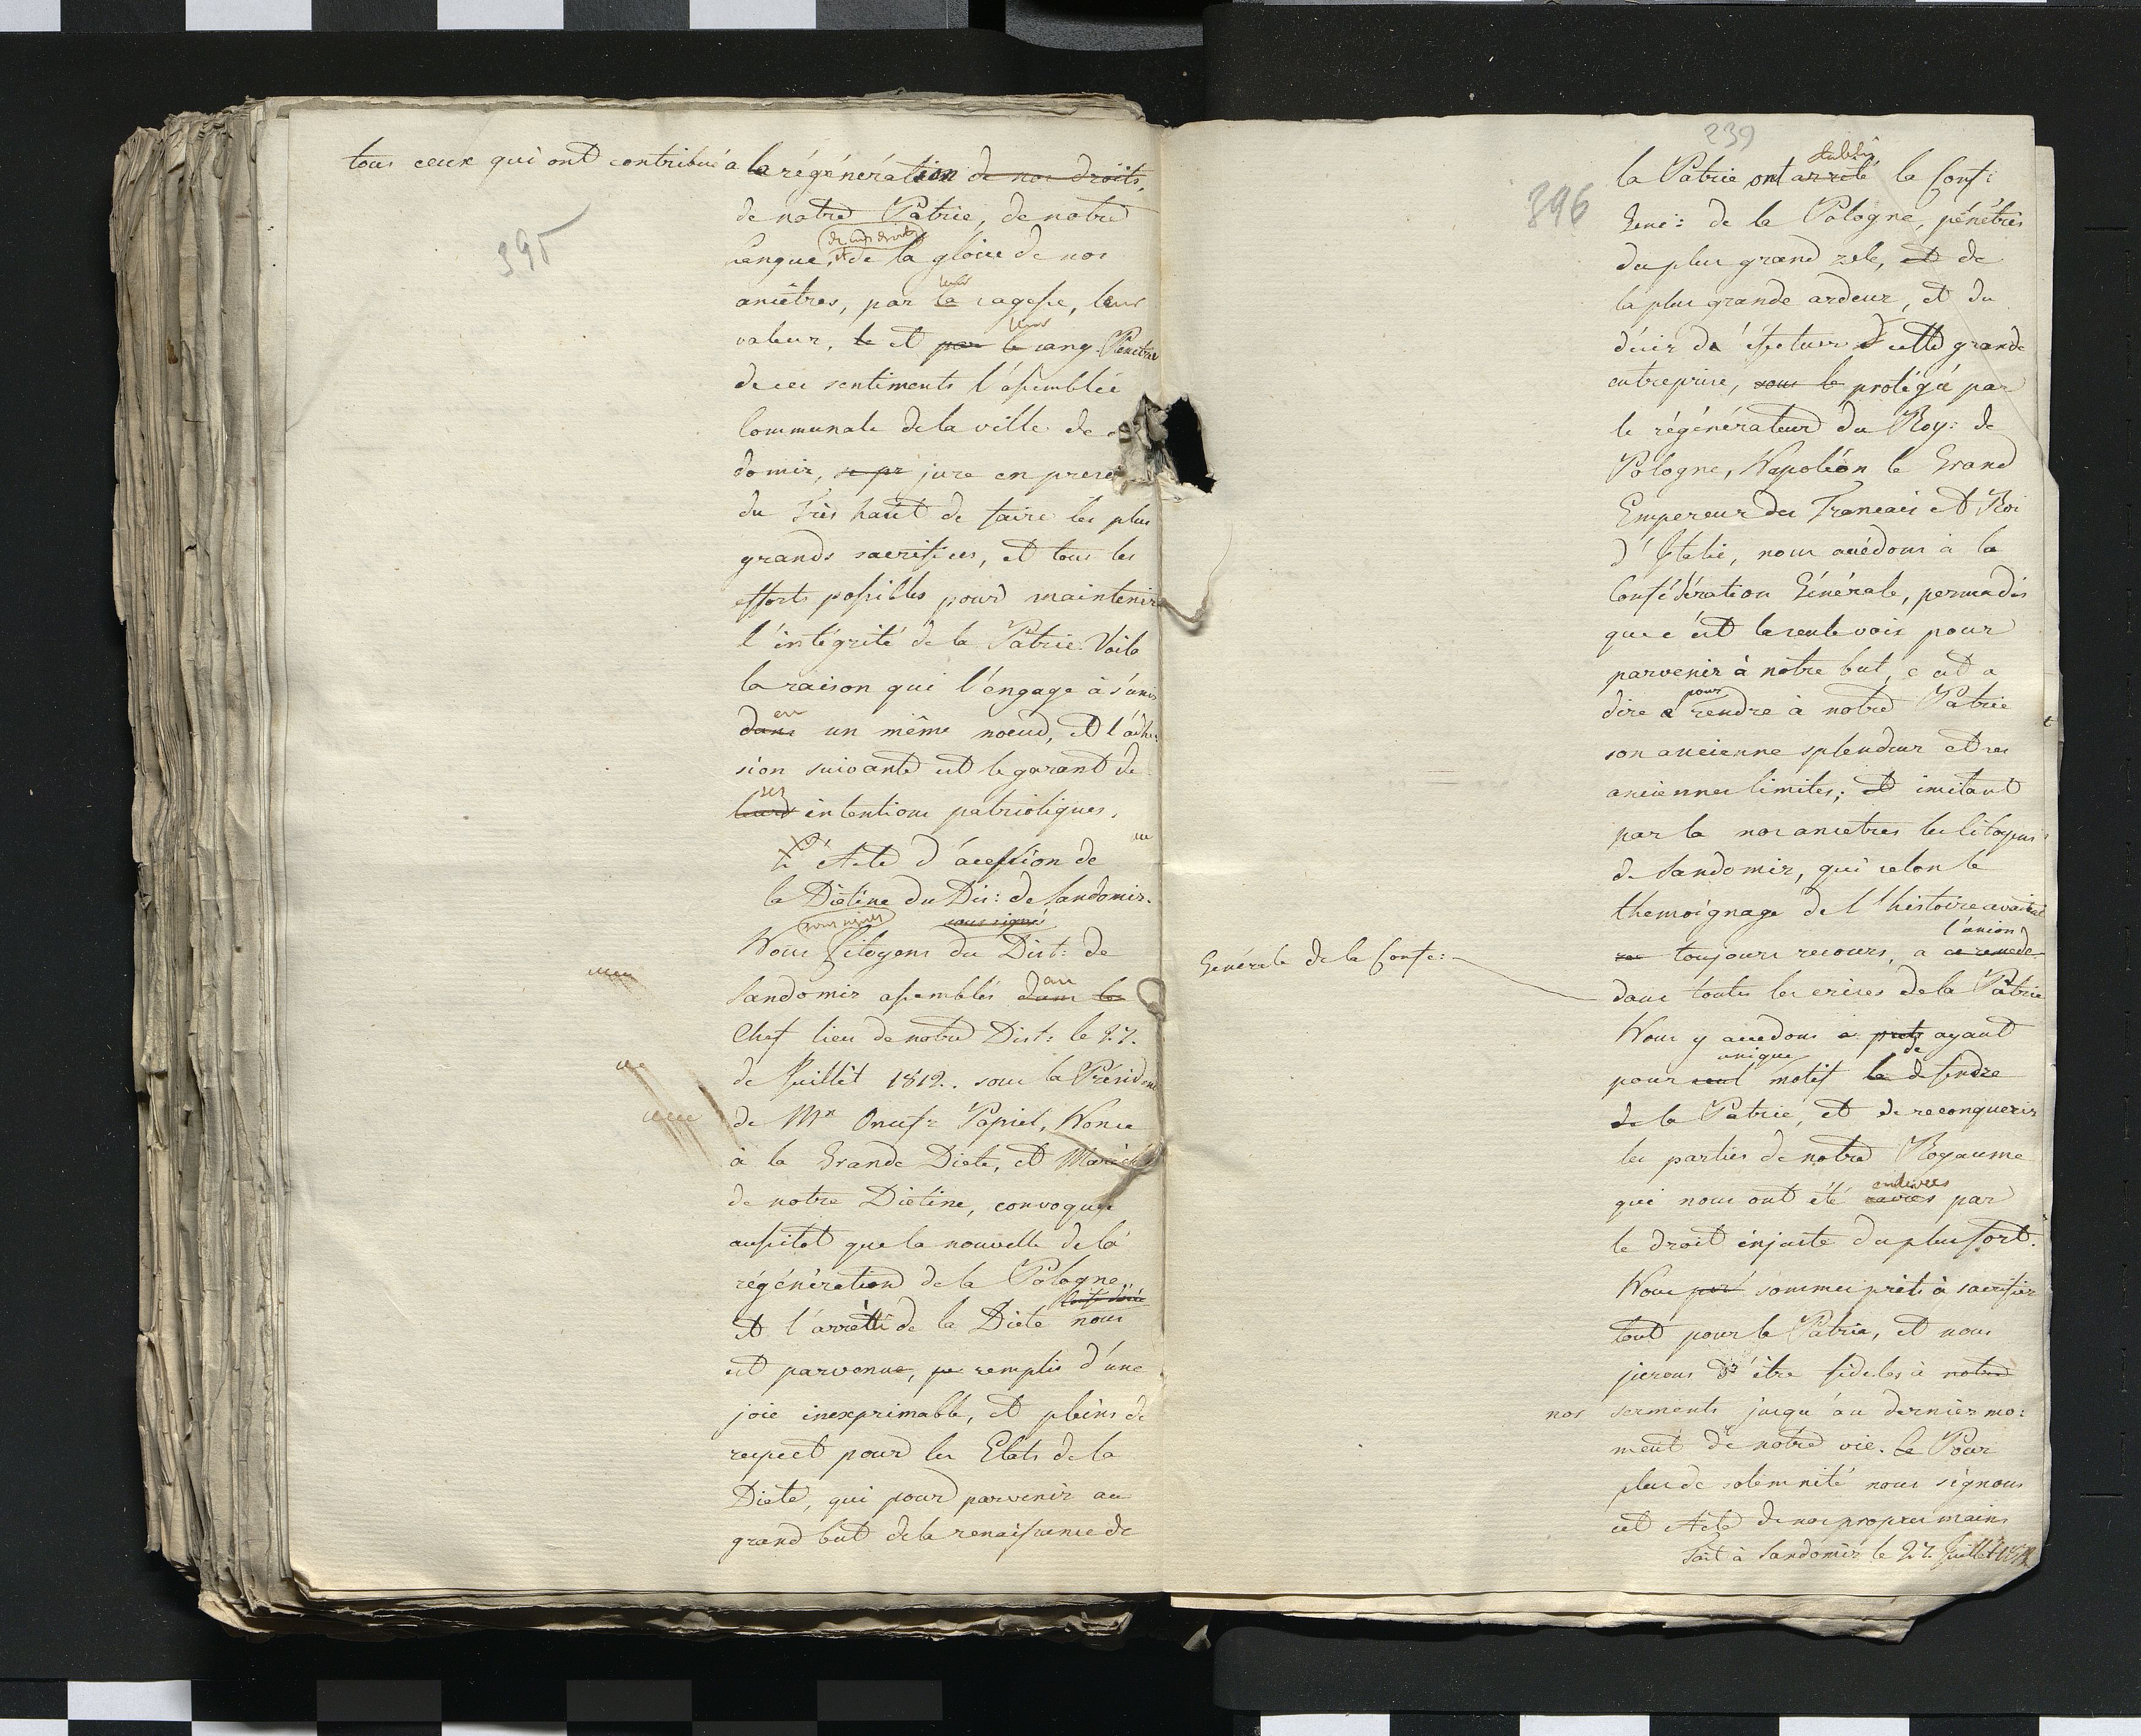 395
tous ceux qui ont contribué à la régénération de nos droits,
de notre Patrie, de notre
de nos droits
Langue, et de la gloire de nos
leur
ancêtres, par la sagesse, leur
leur
valeur, le et par le sang. Penetrée
de ces sentiments l'assemblée
Communale de la ville de
domir, se pr jure en presen
du Très haut de faire les plus
grands sacrifices, et tous les
efforts possibles pour maintenir
l'intégrité de la Patrie. Voila
la raison qui l'engage à s'unir
en
dans un même noeud, et l'adhe:
sion suivante est le garant de
ses
leurs intentions patriotiques.
Acte d'acession de
la Diètine du Dis: de Sandomir.
soussignés sous signés
Nous Citoyens du Dist: de
au
Sandomir assemblés dans le
Chef lieu de notre Dist: le 27.
de Juillet 1812. sous la Présiden
de Mr Onuf: Popiel, Nonce
à la Grande Diete, et Maréch
de notre Diètine, convoquée
aussitot que la nouvelle de la
régénération de la Pologne,
et l'arrêté de la Diete nous
est parvenue, pe remplis d'une
joie inexprimable, et pleins de
respect pour les Etats de la
Diete, qui pour parvenir au
grand but de la renaissance de
239
396
établi
la Patrie ont arrêté la Conf:
Gené: de la Pologne, pénétrés
du plus grand zele, et de
la plus grande ardeur, et du
désir de éfectuer cette grande
entreprise, sous le protégé par
le régénérateur du Roy: de
Pologne, Napoléon le Grand
Empereur des Francais et Roi
d'Italie, nous accédons à la
Conféderation Générale, persuadés
que c'est la seule voie pour
parvenir à notre but, c est a
pour
dire a rendre à notre Patrie
son ancienne splendeur et ses
anciennes limites; et imitant
par la nos ancetres les Citoyens
de Sandomir, qui selon le
themoignage de l'histoire avaient
l'union
toujours recours, a ce remede
Générale de la Confe:
dans toutes les crises de la Patrie
Nous y accedons a prets ayant
unique de
pour seul motif la defendre
de la Patrie, et de reconquerir
les parties de notre Royaume
enlevées
qui nous ont été ravies par
le droit injuste du plus fort.
Nous pret sommes prèts à sacrifier
tout pour la Patrie, et nous
jurons d'être fideles à notre
nos serments jusqu'au dernier mo:
ment de notre vie. Le Pour
plus de solemnité nous signons
cet Acte de nos propres mains
Fait à Sandomir le 27. Juillet 1812